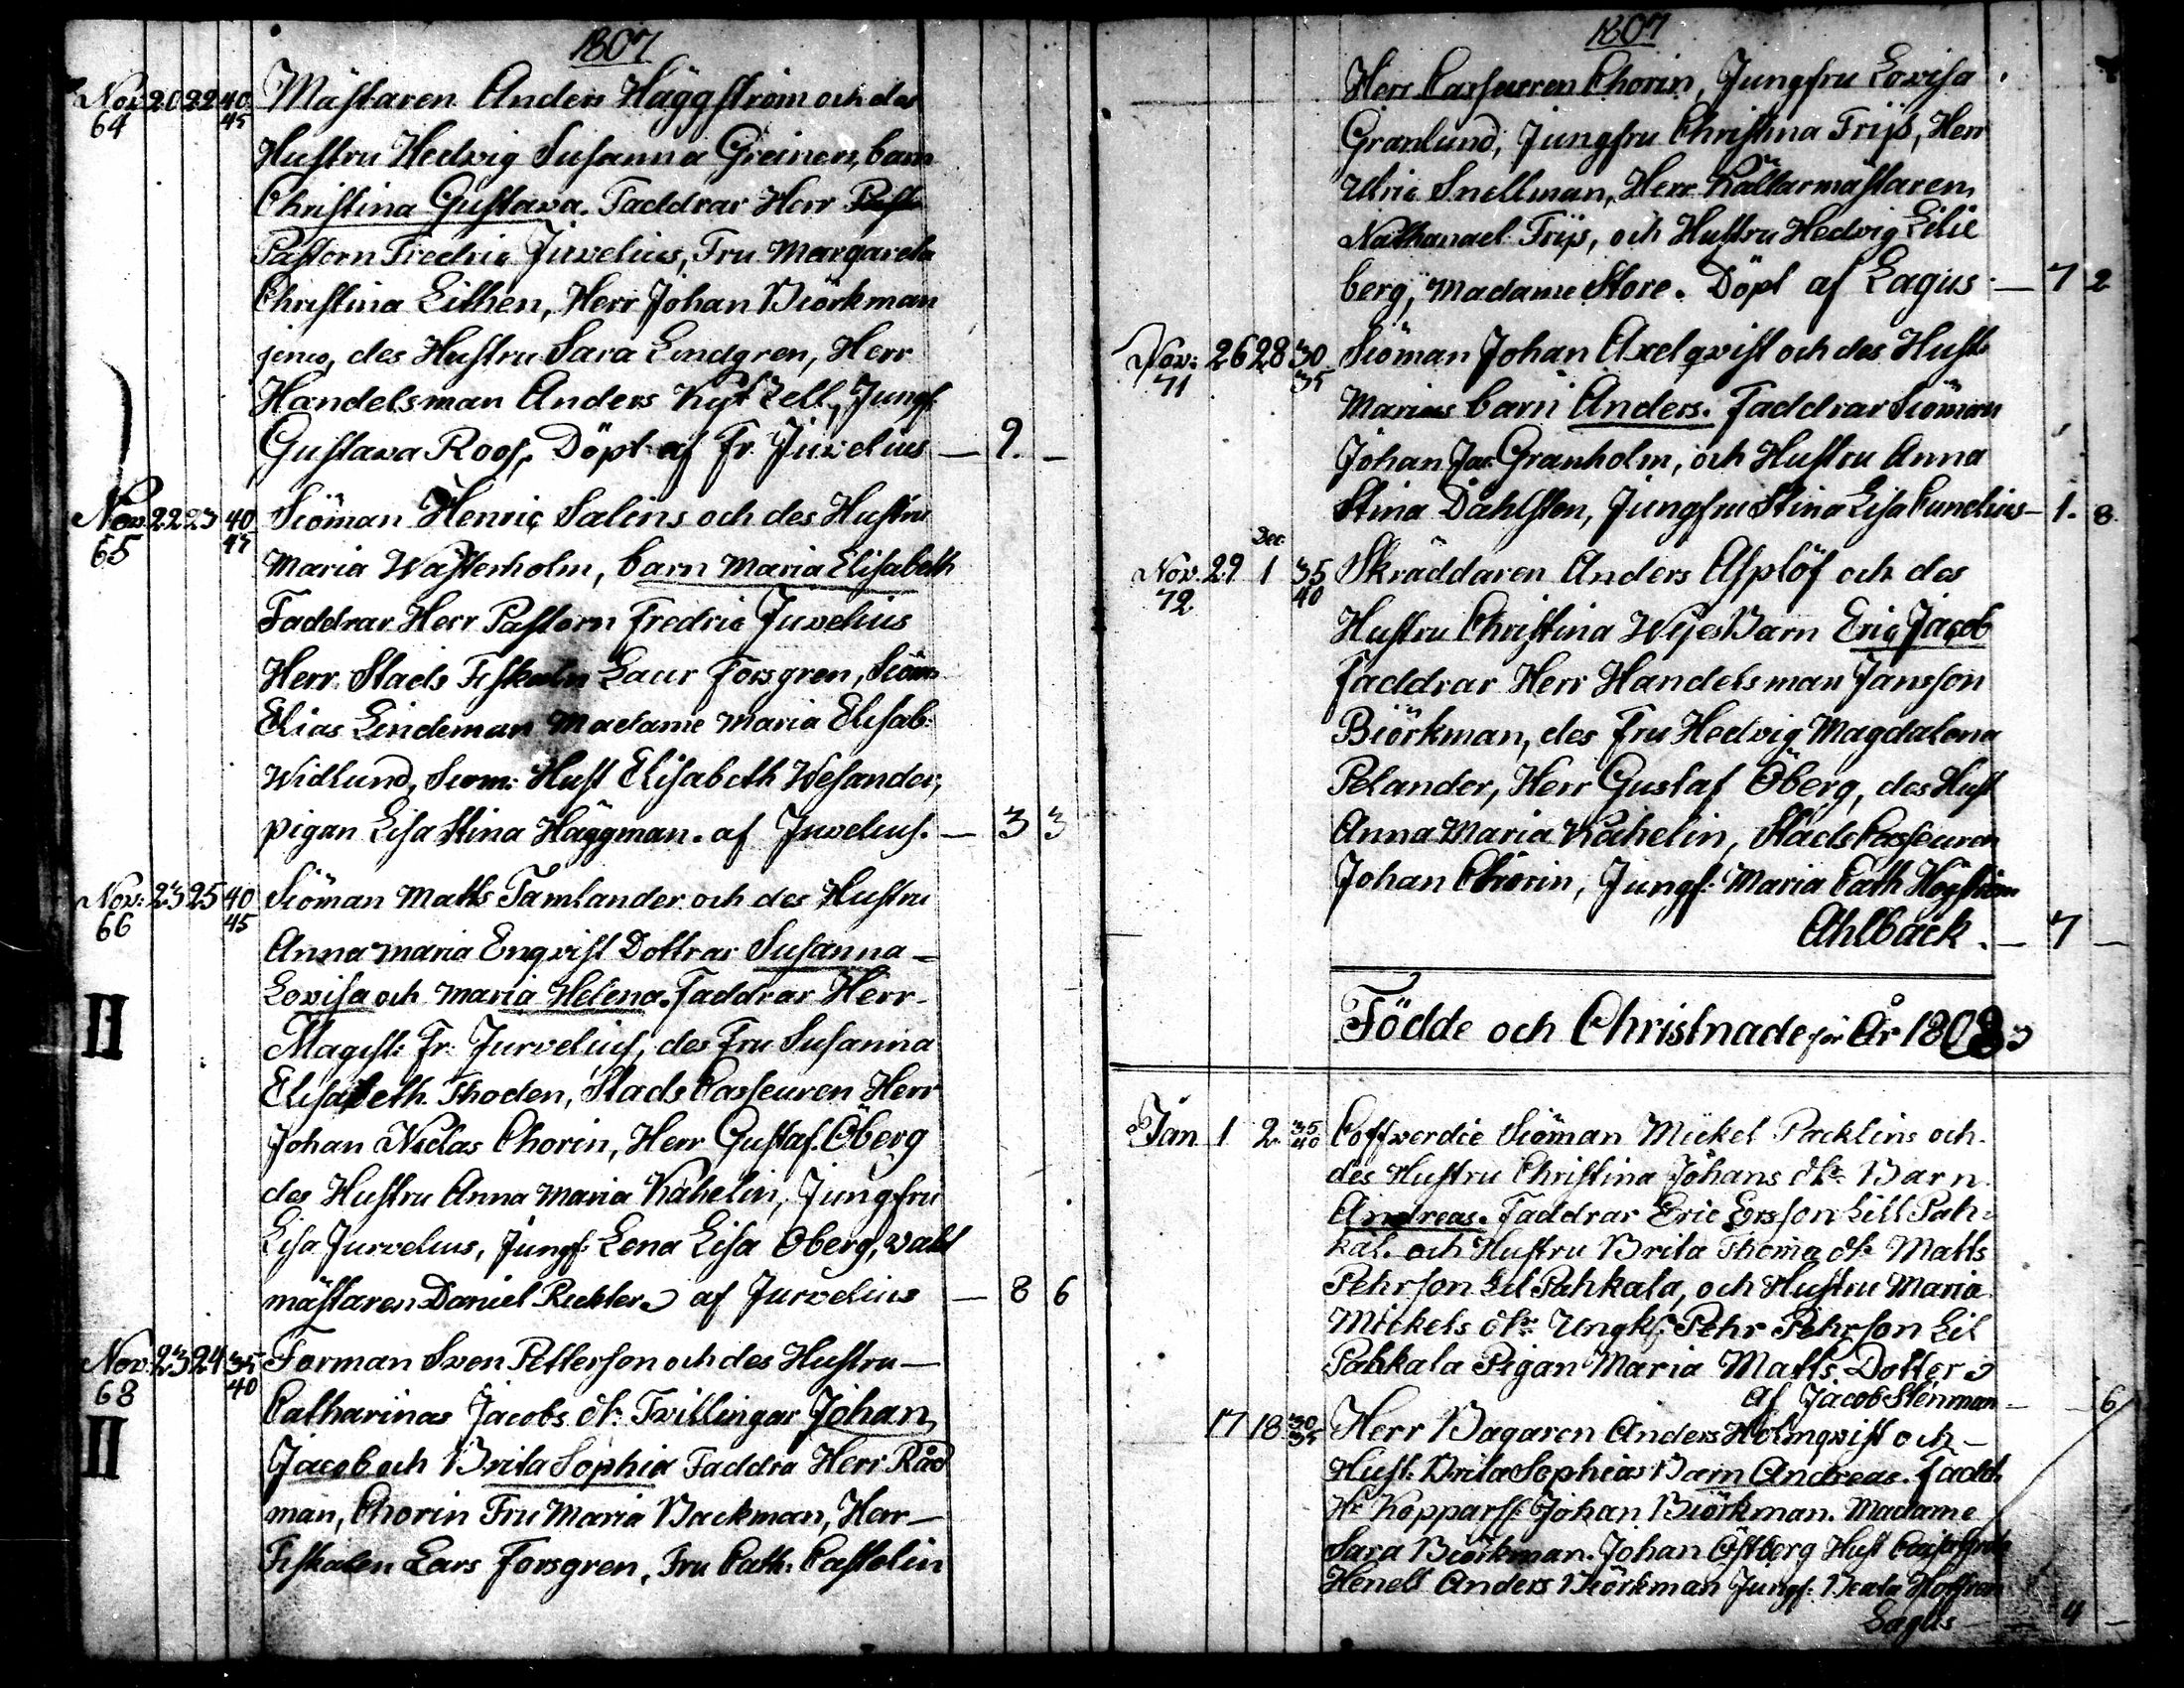 1807
Nov. 20 22 40 Mästaren Anders Häggström och des
64 45
Hustru Hedvig Susanna Greiners, barn
Christina Gustava. Faddrar Herr Past
Pastorn Fredric Juvelius, Fru Margareta
Christina Lithen, Herr Johan Biörkman
jenio, des Hustru Sara Lindgren, Herr
Handelsman Anders Kyntzell, Jungf.
Gustava Roos, Döpt af Fr. Juvelius — 9. —
Nov. 22 23 40 Siöman Henric Salins och des Hustru
65 47
Maria Wästerholm, barn Maria Elisabeth
Faddrar Herr Pastorn Fredric Juvelius
Herr Stads Fiskalen Laur Forsgren, Siöm
Elias Lindeman Madame Maria Elisab:
Widlund, Siom: Hust Elisabeth Wesander,
pigan Lisa Stina Häggman. af Juvelius. — 3 3
Nov: 23 25 40 Siöman Matts Tamlander och des Hustru
66 45
Anna Maria Enqvist Dottrar Susanna –
Lovisa och Maria Helena. Faddrar Herr
II Magist: Fr. Jurvelius, des Fru Susanna
Elisabeth Thoden, Stads Casseuren Herr
Johan Niclas Chorin, Herr Gustaf Öberg
des Hustru Anna Maria Kahelin, Jungfru
Lisa Jurvelius, Jungf: Lena Lisa Öberg, wakt
mästaren Daniel Richter af Jurvelius — 8 6
Nov. 23 24 35 Forman Sven Petterson och des Hustru —
68 40
Catharinas Jacobs dr Tvillingar Johan
II Jacob och Brita Sophia Faddra Herr Råd
man, Chorin Fru Maria Backman, Herr —
Fiskalen Lars Forsgren, Fru Cath: Castolin
1807
Herr Casseuren Chorin, Jungfru Lovisa
Granlund, Jungfru Christina Frijs, Herr
Ulric Snellman, Herr Källarmästaren
Nathanael Frijs, och Hustru Hedvig Lilie
berg, Madame Store. Döpt af Lagus — 7 2
Nov: 26 28 30 Siöman Johan Axelqvist och des Hust
71 35
Marias barn Anders. Faddrar Siöman
Johan Jac Granholm, och Hustru Anna
Stina Dahlsten, Jungfru Stina Lisa Cunelius — 1. 8.
Dec.
Nov. 29 1 35 Skräddaren Anders Asplöf och des
72 40
Hustru Christina Wijes Barn Eric Jacob
Faddrar Herr Handelsman Jansson
Biörkman, des Fru Hedvig Magdalena
Pelander, Herr Gustaf Öberg, des Hust
Anna Maria Kahelin, Stads Casseuren
Johan Chorin, Jungf: Maria Cath Högström
Ahlbäck. — 7 —
Födde och Christnade för År 1808
Jan 1 2 35 Coffverdie Siöman Mickel Packlins och
40
des Hustru Christina Johans dr Barn
Andreas. Faddrar Eric Ersson Lill Pah:
kal. och Hustru Brita Thoma dr Matts
Pehrson Lil Pahkala, och Hustru Maria
Mickels dr Ungk: Pehr Pehrson Lil
Pahkala Pigan Maria Matts Dotter
af Jacob Stenman — 6
17 18 30 Herr Bagaren Anders Holmqvist och —
35
Hust: Brita Sophias Barn Andreas. Fadd
Hr Kopparsl. Johan Biörkman. Madame
Sara Biörkman. Johan Östberg Hust
Henell Anders Biörkman Jungf: Beata
Lagus — 4 —